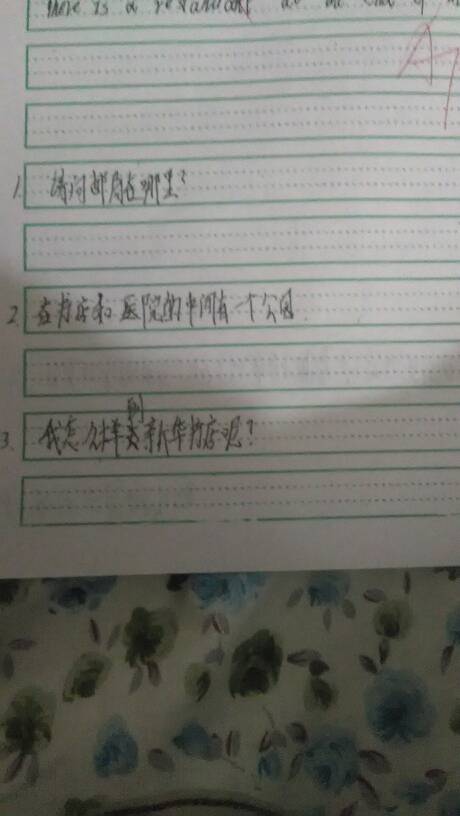 there is a restaurant at the end of
A+
1. 请问邮局在哪里?
2. 在书店和医院的中间有一个公园.
3. 我怎么样到新华书店呢?